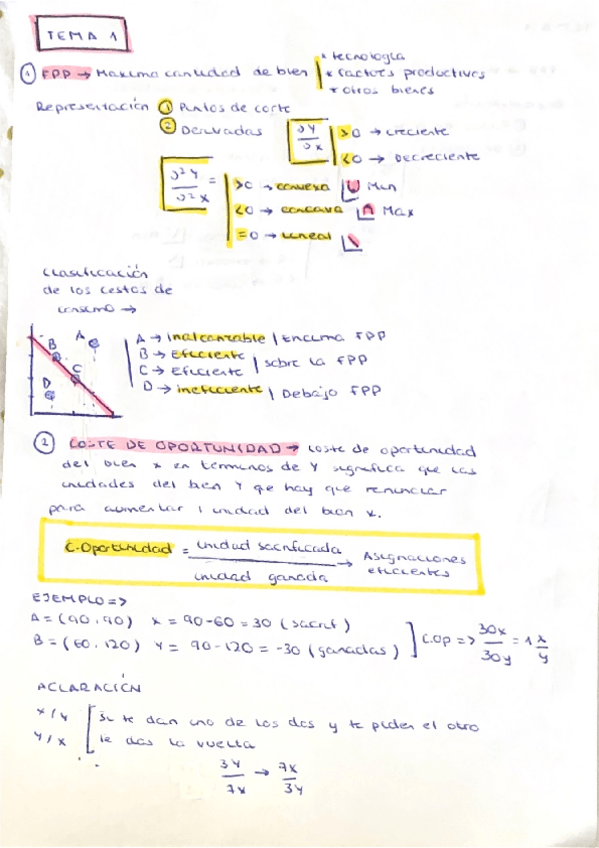 TEMA 1
* tecnología
① FPP → Maxima cantidad de bien * factores productivos
* otros bienes
Representación ① Puntos de corte
② Derivadas ∂Y/∂X >0 → creciente
<0 → Decreciente
∂²Y/∂²X = >0 → convexa Min
<0 → concava Max
=0 → lineal
Clasificación
de los cestos de
consumo →
A → Inalcanzable | Encima FPP
B → Eficiente
C → Eficiente | sobre la FPP
D → ineficiente | Debajo FPP
A
B
C
D
② COSTE DE OPORTUNIDAD → coste de oportunidad
del bien x en términos de Y significa que las
unidades del bien Y qe hay que renunciar
para aumentar 1 unidad del bien x.
C.Oportunidad = unidad sacrificada / unidad ganada → Asignaciones
eficientes
EJEMPLO =>
A = (90, 90) x = 90-60 = 30 (sacrif)
B = (60, 120) Y = 90-120 = -30 (ganadas) ] C.Op => 30x/30y = 1 x/y
ACLARACIÓN
x/y [ Si te dan uno de los dos y te piden el otro
y/x le das la vuelta
3y/7x → 7x/3y